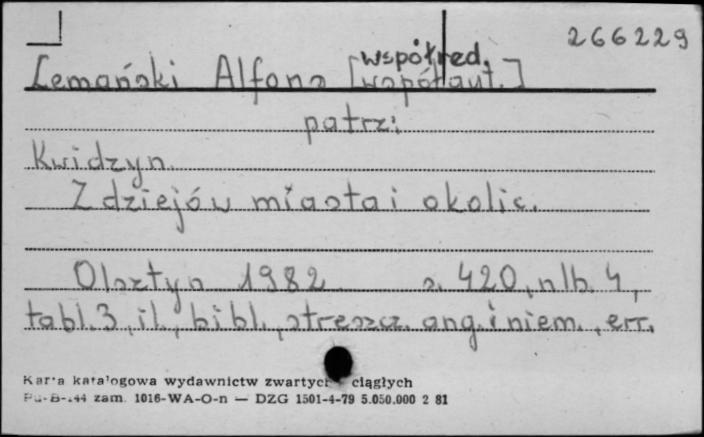 266229
współred.
Lemański Alfons [współaut.]
patrz:
Kwidzyn.
Z dziejów miasta i okolic.
Olsztyn 1982 s. 420, nlb. 4,
tabl. 3, il., bibl., streszcz. ang. i niem., err.
Karta katalogowa wydawnictw zwartych ciągłych
Pu-B-144 zam. 1016-WA-O-n — DZG 1501-4-79 5.050.000 2 81